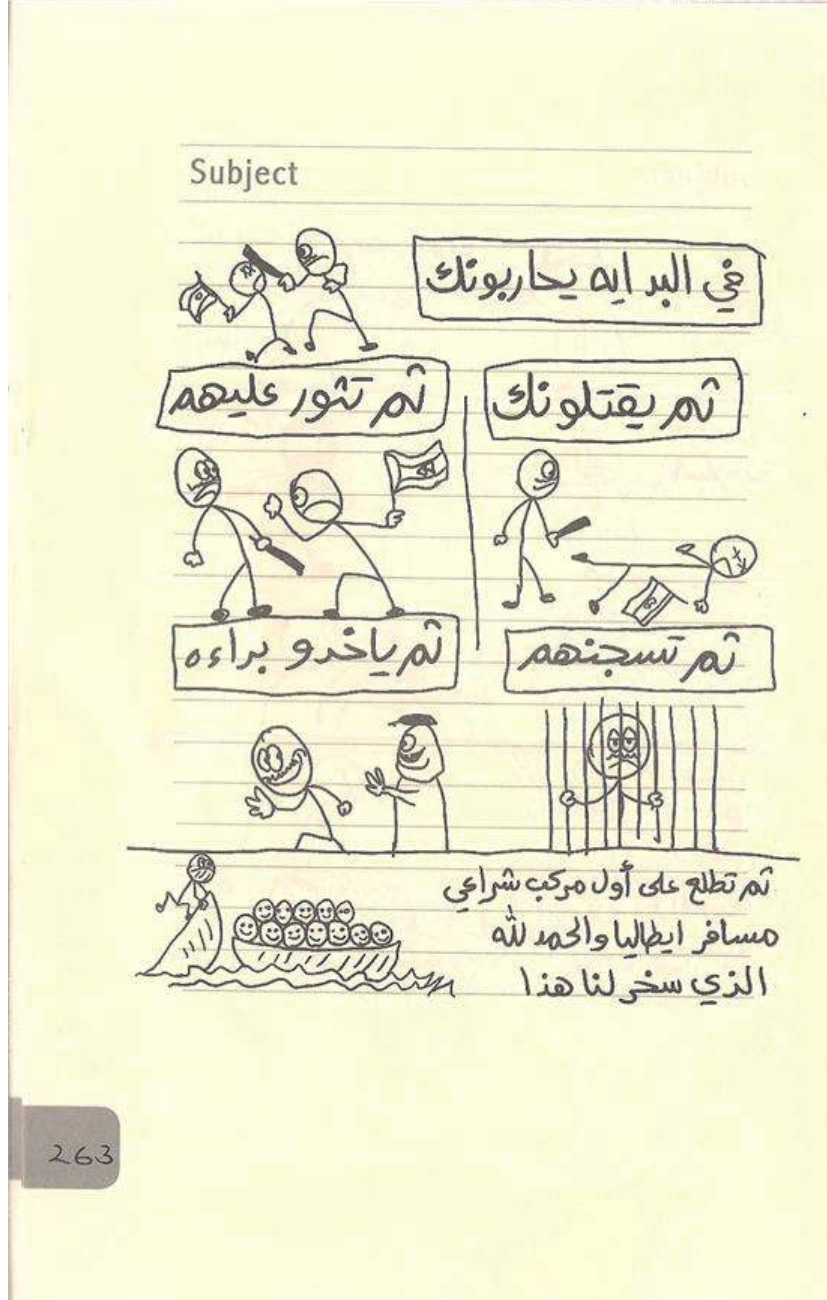 Subject
في البدايه يحاربونك
ثم يقتلونك
ثم تثور عليهم
ثم تسجنهم
ثم ياخدو براءه
ثم تطلع على أول مركب شراعي
مسافر ايطاليا والحمد لله
الذي سخر لنا هذا
263